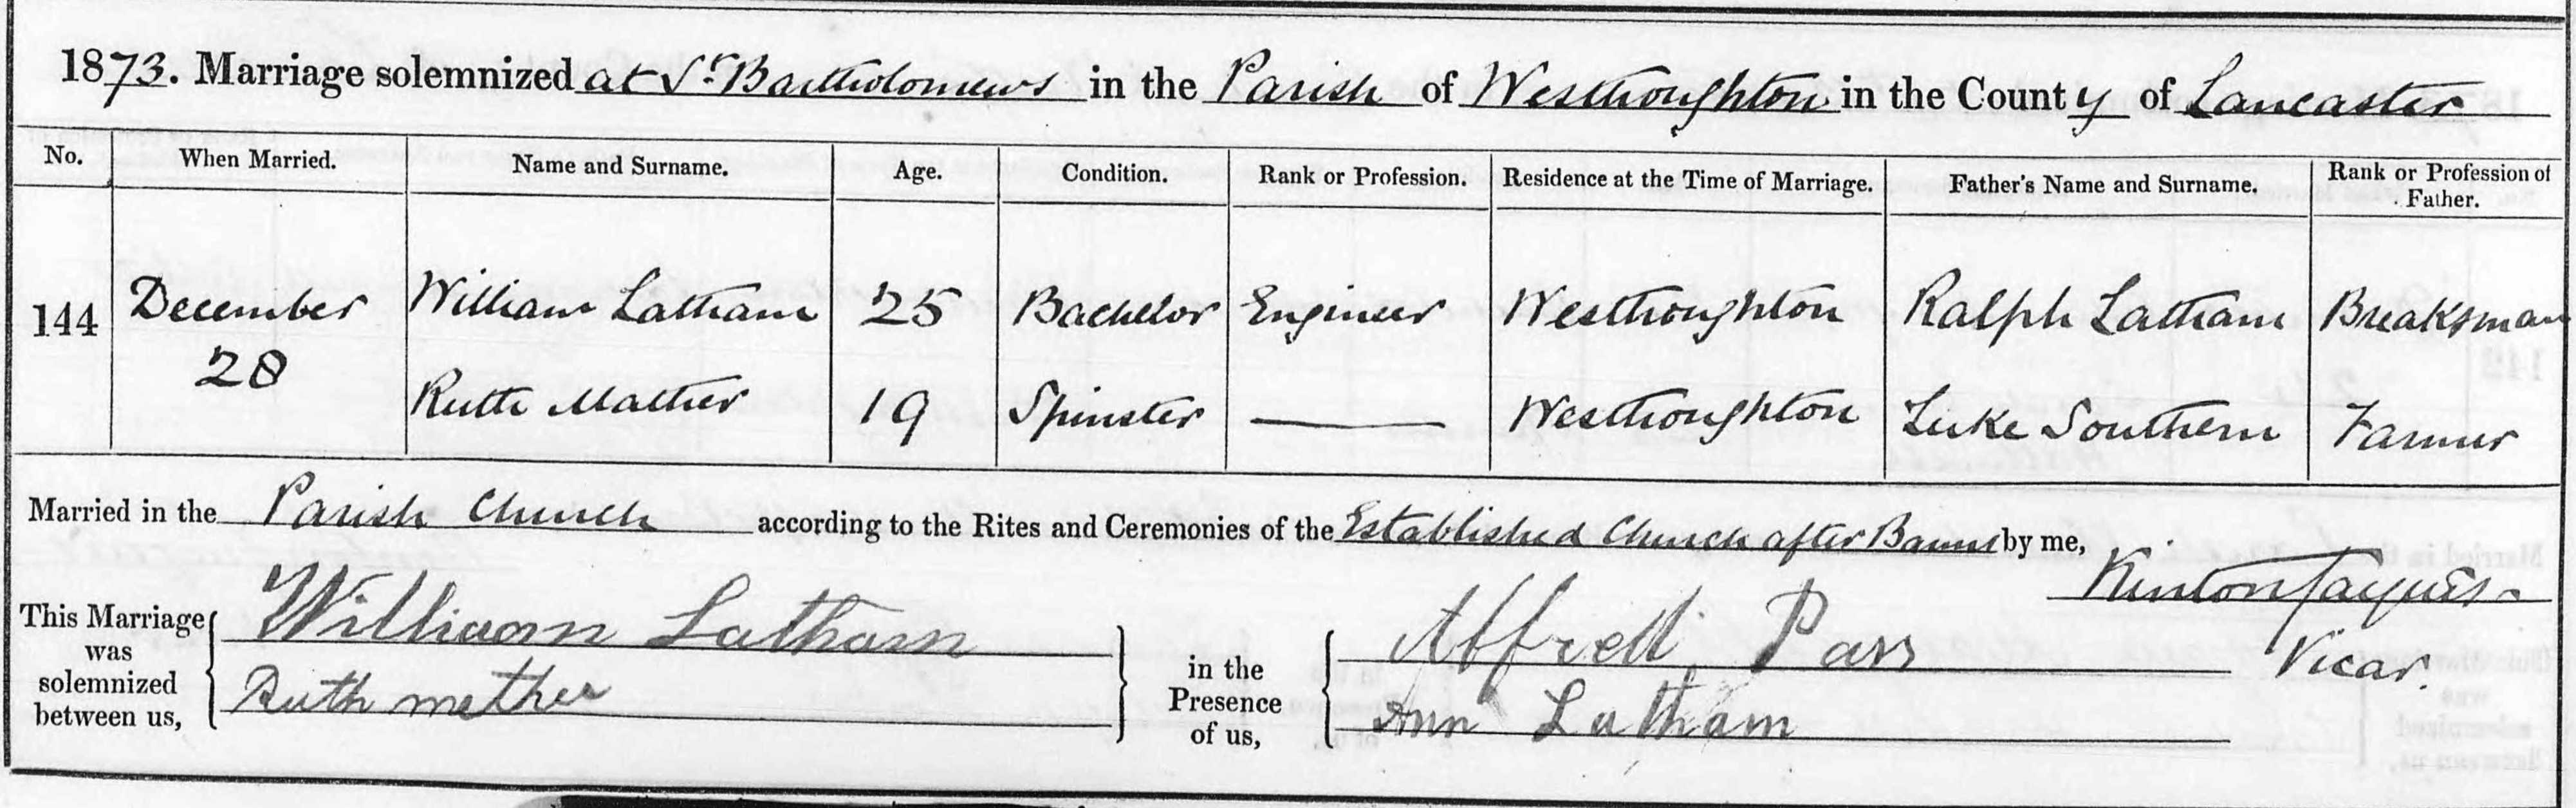 1873. Marriage solemnized at St Bartholomews in the Parish of Westhoughton in the County of Lancaster
No. When Married. Name and Surname. Age. Condition. Rank or Profession. Residence at the Time of Marriage. Father's Name and Surname. Rank or Profession of Father.
144 December 28 William Latham 25 Bachelor Engineer Westhoughton Ralph Latham Breaksman
Ruth Mather 19 Spinster —— Westhoughton Luke Southern Farmer
Married in the Parish Church according to the Rites and Ceremonies of the Established Church after Banns by me,
Kinton Jacques
Vicar.
This Marriage was solemnized between us, William Latham
Ruth mether
in the Presence of us, Alfred Parr
Ann Latham